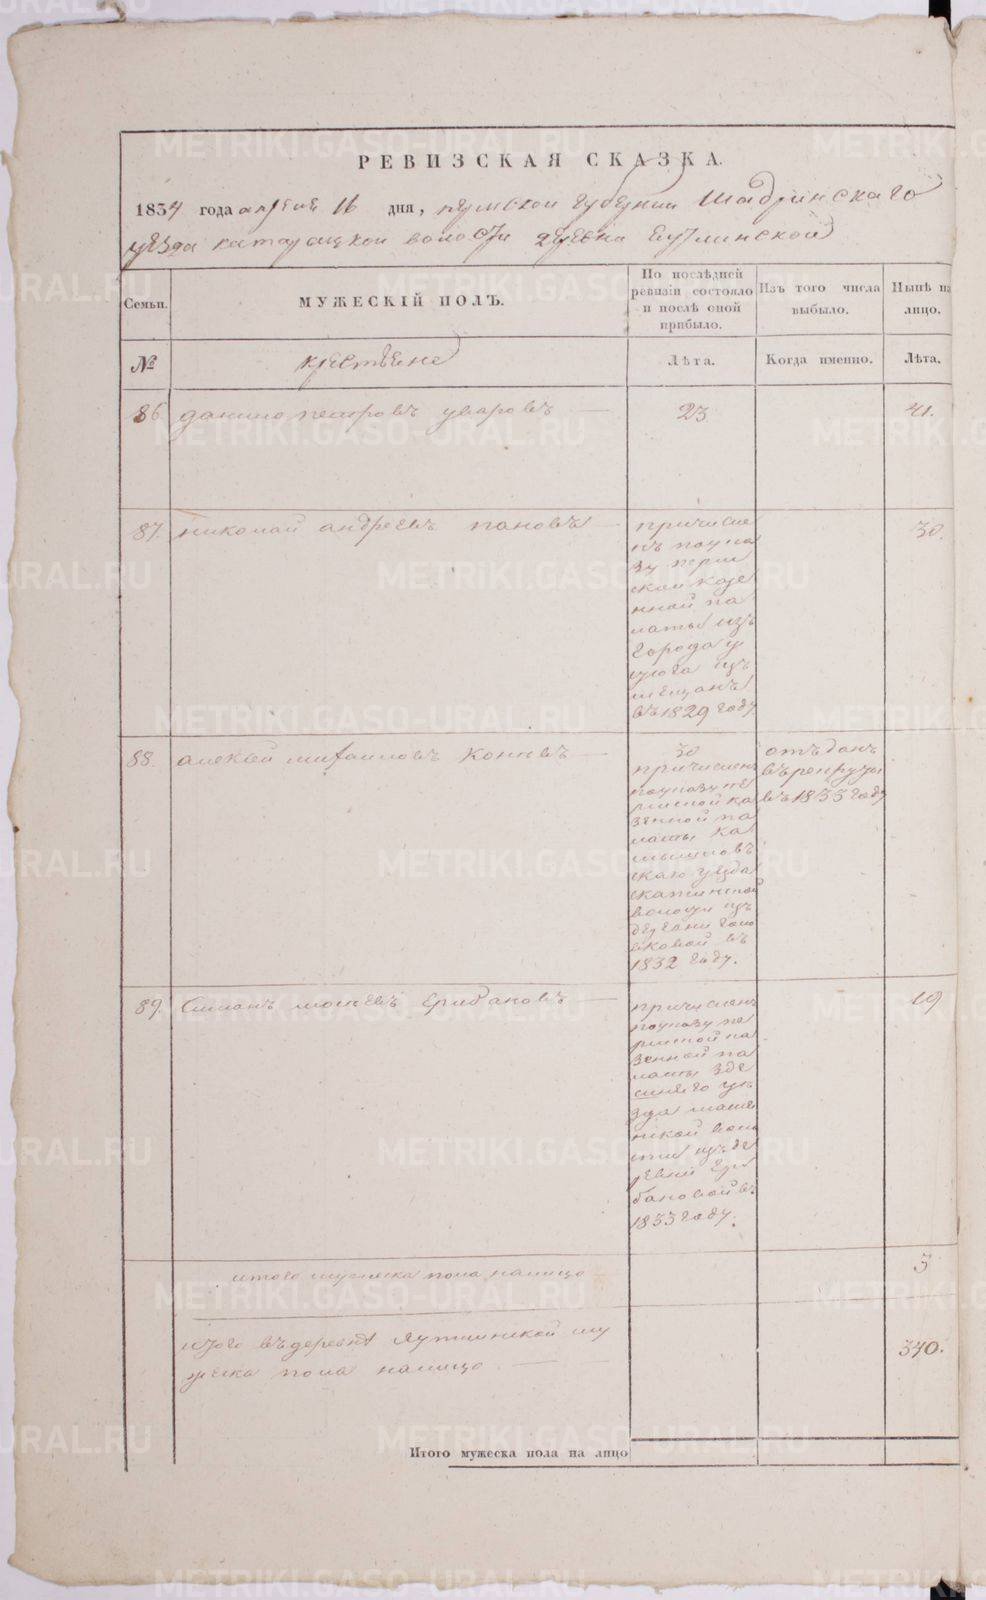 РЕВИЗСКАЯ СКАЗКА.
1834 года апреле 16 дня, пермской губернии Шадринскаго
уезда катарацкой волости деревни
Семьи.
МУЖЕСКІЙ ПОЛЪ.
По послѣдней
ревизіи состояло
и послѣ оной
прибыло.
Изъ того числа
выбыло.
Нынѣ на
лицо.
№
крестьяне
Лѣта.
Когда именно.
Лѣта.
86. данило петровъ уваровъ 23 41.
87. николай андреевъ пановъ 30.
причисле
нъ по указу
перм
ской казе
нной па
латы изъ
города
изъ
мещанъ
въ 1829 году
88. алексей михаиловъ коневъ 30
причисленъ
по указу пе
рмской ка
зенной па
латы ка
мышловъ
скаго уезда
волости изъ
деревни
въ
1832 году.
отъданъ
въ рекруты
въ 1833 году
89. Симанъ моисеевъ грибановъ 19
причисленъ
по указу пе
рмской ка
зенной па
латы зде
шняго уе
зда
воло
сти изъ де
ревни гри
бановой въ
1833 году.
итого мужеска пола налицо 3
итого въ деревнѣ му
жеска пола налицо 340.
Итого мужеска пола на лицо
METRIKI.GASO-URAL.RU